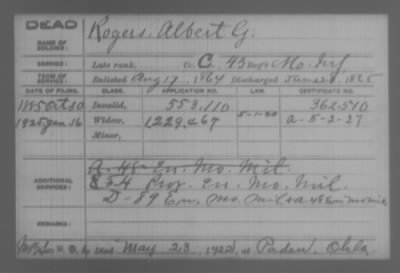 DEAD
NAME OF SOLDIER: Rogers, Albert G.
SERVICE: Late rank, Co. C, 43 Reg't Mo. Inf
TERM OF SERVICE: Enlisted Aug 17, 1864 Discharged June 30, 1865
DATE OF FILING. CLASS. APPLICATION NO. LAW. CERTIFICATE NO.
1885 Oct 30 Invalid, 553,110 362510
1925 Jan 16 Widow, 1,229,467 5-1-20 a-5-2-27
Minor,
ADDITIONAL SERVICES: A. 48 En. Mo. Mil.
& F 4 Prov. En. Mo. Mil.
D-89 En. Mo. Mil Co A 48 En Mo Mil.
REMARKS:
Died May 23, 1922, at Paden, Okla